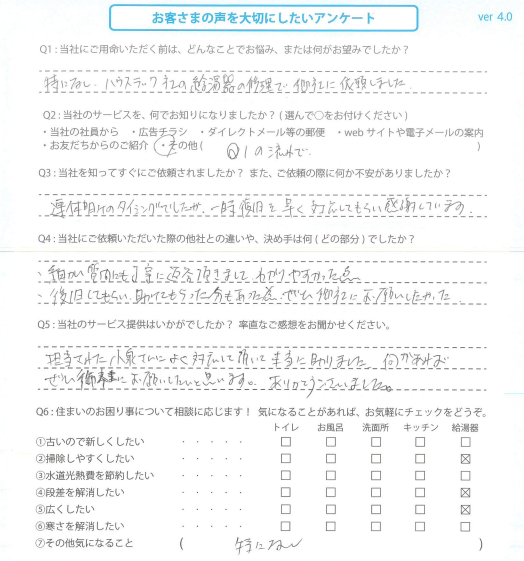 お客さまの声を大切にしたいアンケート
ver 4.0
Q1：当社にご用命いただく前は、どんなことでお悩み、または何がお望みでしたか？
特になし。ハウステック社の給湯器の修理で御社に依頼しました
Q2：当社のサービスを、何でお知りになりましたか？(選んで○をお付けください)
・当社の社員から ・広告チラシ ・ダイレクトメール等の郵便 ・webサイトや電子メールの案内
・お友だちからのご紹介 ・その他( Q1の流れで. )
Q3：当社を知ってすぐにご依頼されましたか？また、ご依頼の際に何か不安がありましたか？
連休明けのタイミングでしたが、一時復旧を早く対応してもらい感謝しています.
Q4：当社にご依頼いただいた際の他社との違いや、決め手は何(どの部分)でしたか？
・細かい質問にも丁寧に返答頂きまして わかりやすかった点
・復旧してもらい、助けてもらった分もあった点 ぜひ御社にお願いしたかった
Q5：当社のサービス提供はいかがでしたか？率直なご感想をお聞かせください。
担当された小泉さんによく対応して頂いて本当に助かりました 何かあれば
ぜひ お願いしたいと思います。ありがとうございました。
Q6：住まいのお困り事について相談に応じます！ 気になることがあれば、お気軽にチェックをどうぞ。
トイレ お風呂 洗面所 キッチン 給湯器
①古いので新しくしたい ・・・・・ □ □ □ □ □
②掃除しやすくしたい ・・・・・ □ □ □ □ ☒
③水道光熱費を節約したい ・・・・・ □ □ □ □ □
④段差を解消したい ・・・・・ □ □ □ □ ☒
⑤広くしたい ・・・・・ □ □ □ □ ☒
⑥寒さを解消したい ・・・・・ □ □ □ □ □
⑦その他気になること ( 特になし )